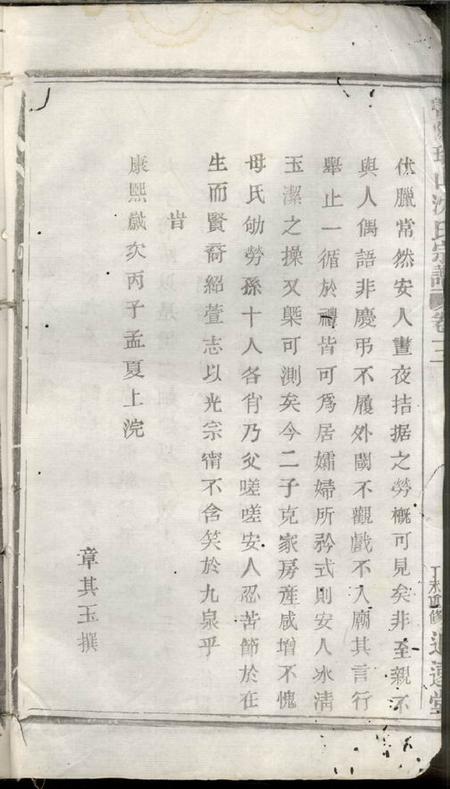 沈氏宗譜
卷三
追遠堂
伏臘常然安人晝夜拮据之勞概可見矣非至親不
與人偶語非慶弔不履外閾不觀戲不入廟其言行
舉止一循於禮皆可爲居孀婦所矜式則安人冰清
玉潔之操又槩可測矣今二子克家房産咸增不愧
母氏劬勞孫十人各肖乃父嗟嗟安人忍苦節於在
生而賢裔紹萱志以光宗甯不含笑於九泉乎
旹
康熙歲次丙子孟夏上浣
章其玉撰